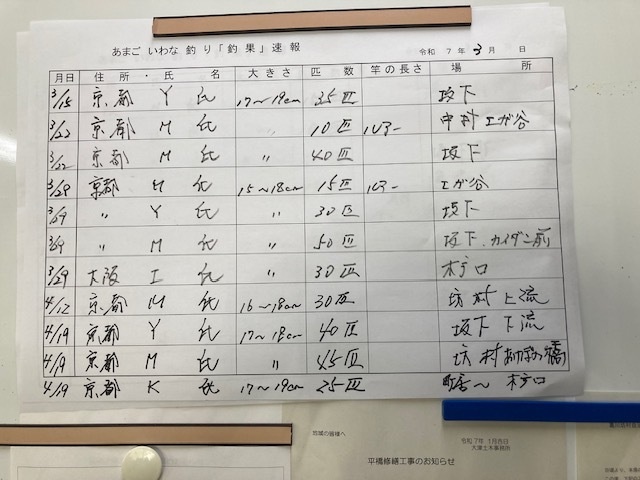 あまご いわな 釣り「釣果」速報 令和 7年 3月 日
月日 住所・氏名 大きさ 匹数 竿の長さ 場所
3/15 京都 Y 氏 17〜19cm 35匹 坂下
3/22 京都 M 氏 〃 10匹 ルアー 中村 エガ谷
3/22 京都 M 氏 〃 40匹 坂下
3/28 京都 M 氏 15〜18cm 15匹 ルアー エガ谷
3/29 〃 Y 氏 〃 30匹 坂下
3/29 〃 M 氏 〃 50匹 坂下、カイダン前
3/29 大阪 I 氏 〃 30匹 木戸口
4/12 京都 M 氏 16〜18cm 30匹 坊村上流
4/19 京都 Y 氏 17〜18cm 40匹 坂下下流
4/19 京都 M 氏 〃 45匹 坊村 橋
4/19 京都 K 氏 17〜19cm 25匹 町居〜 木戸口
地域の皆様へ
令和7年 1月吉日
大津土木事務所
平橋修繕工事のお知らせ